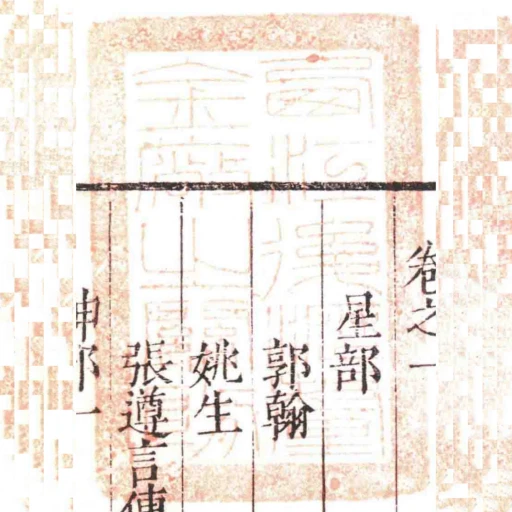 卷之一
星部
郭翰
姚生
張遵言傳
神部一